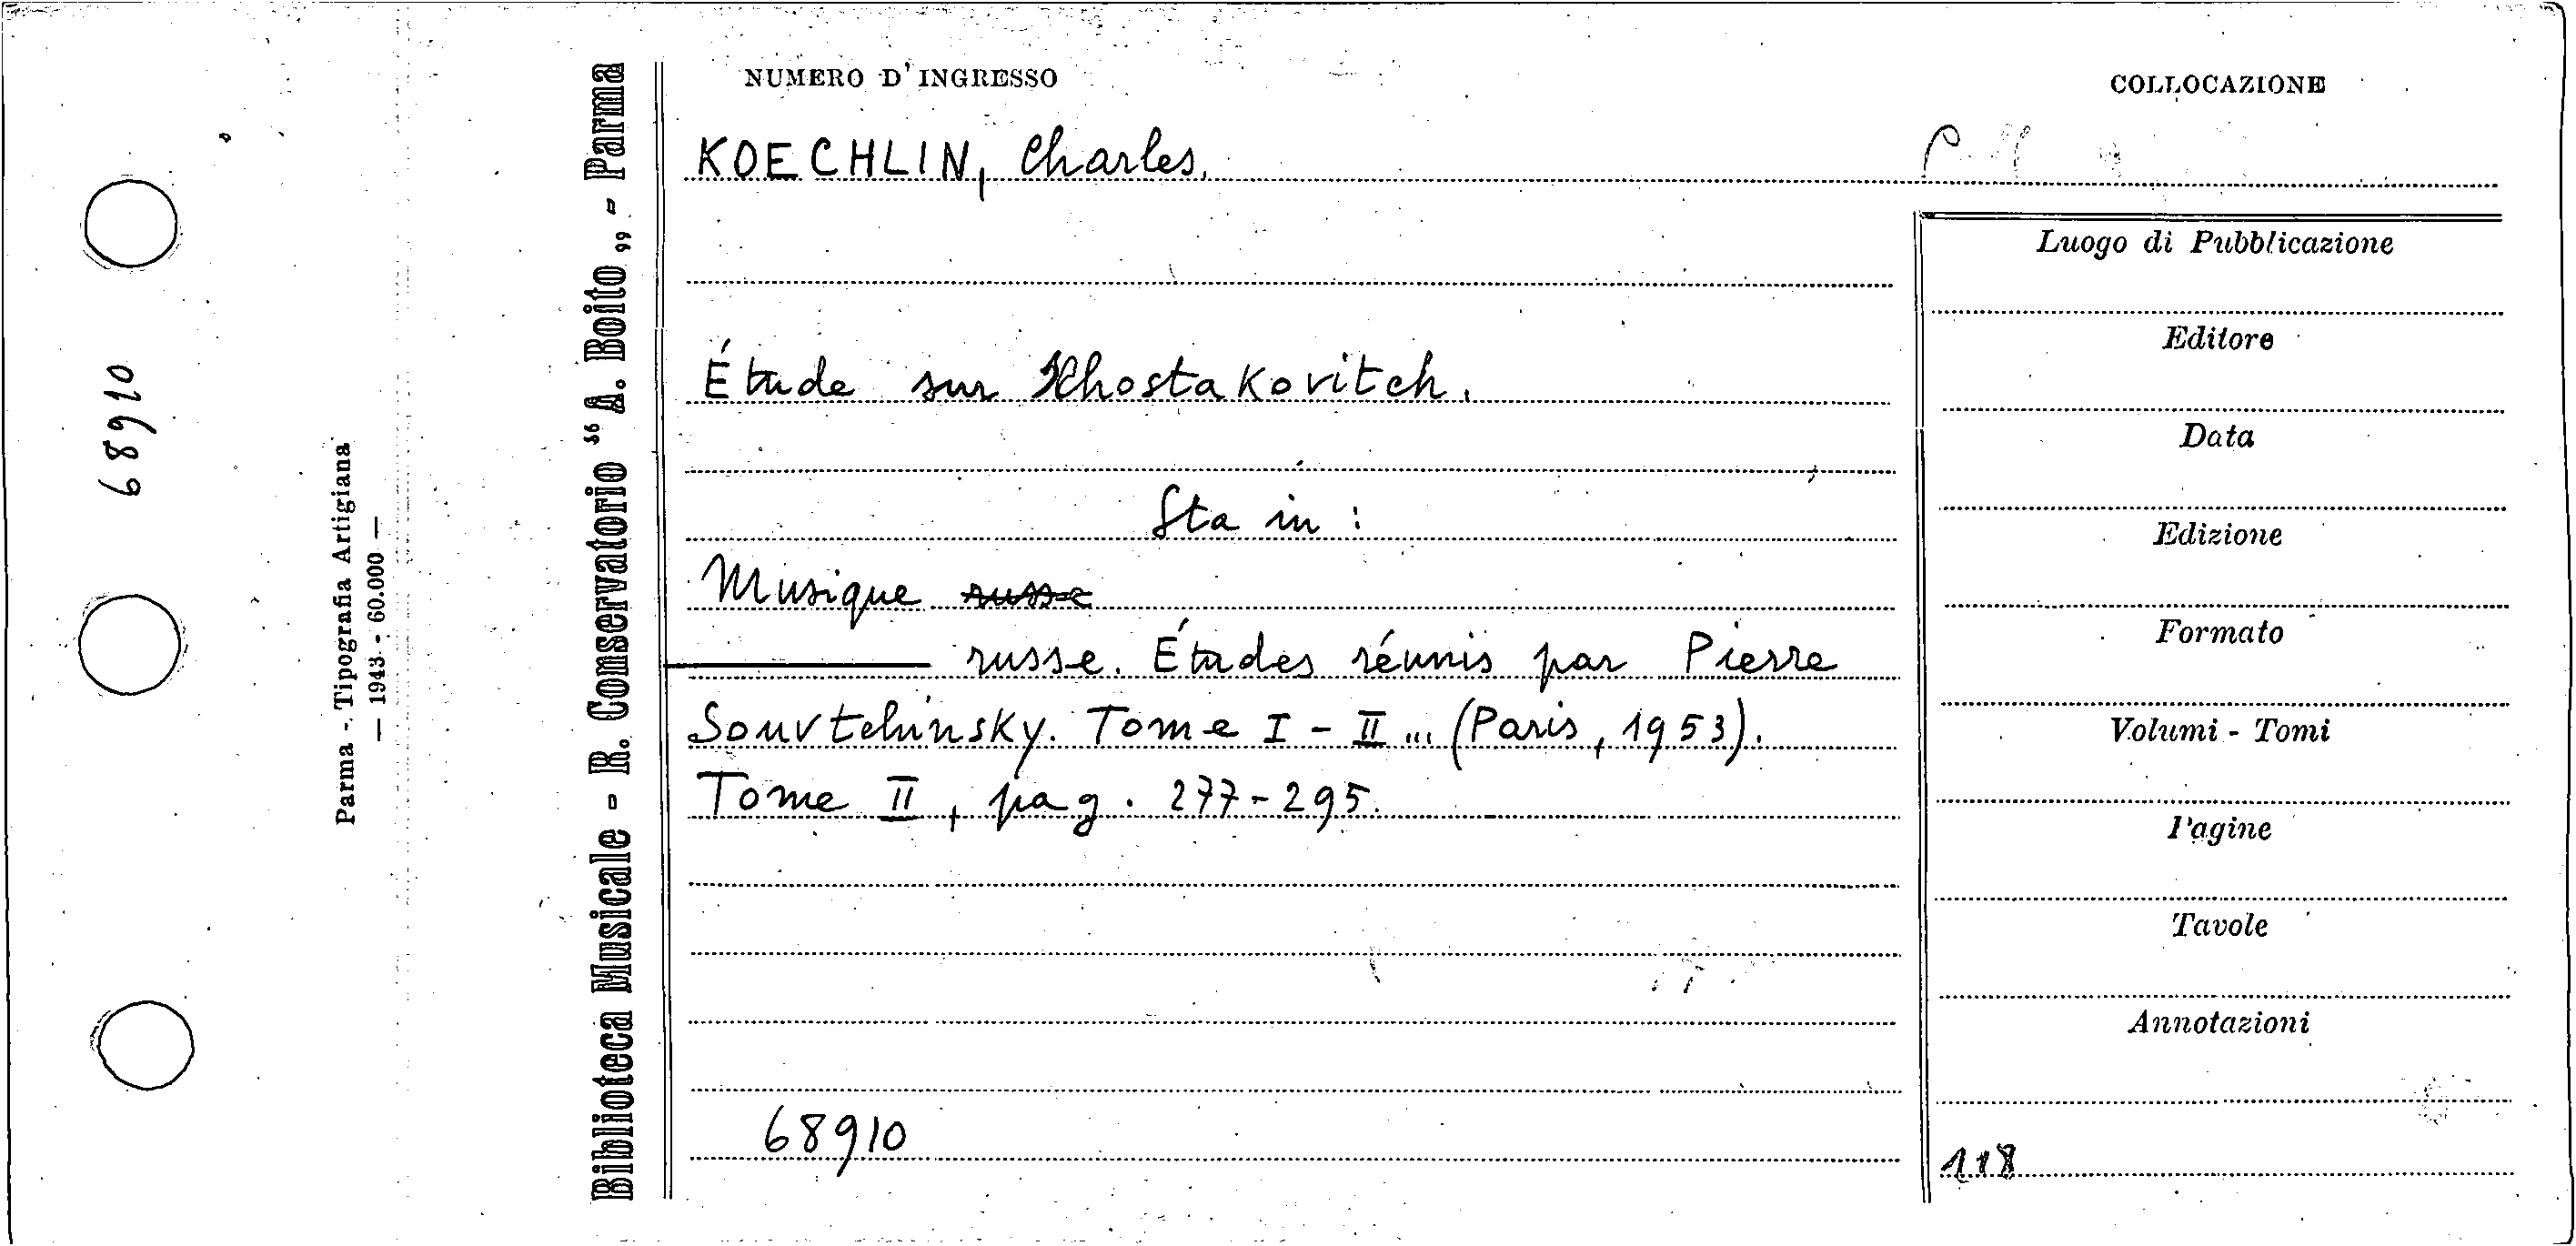 NUMERO D'INGRESSO
COLLOCAZIONE
KOECHLIN, Charles.
Étude sur Khostakovitch.
Sta in :
Musique russe
russe. Études réunis par Pierre
Souvtchinsky. Tome I - II ... (Paris, 1953).
Tome II, pag. 277-295.
68910
Luogo di Pubblicazione
Editore
Data
Edizione
Formato
Volumi - Tomi
Pagine
Tavole
Annotazioni
118
Biblioteca Musicale - R. Conservatorio "A. Boito„ - Parma
Parma - Tipografia Artigiana
— 1943 - 60.000 —
68910